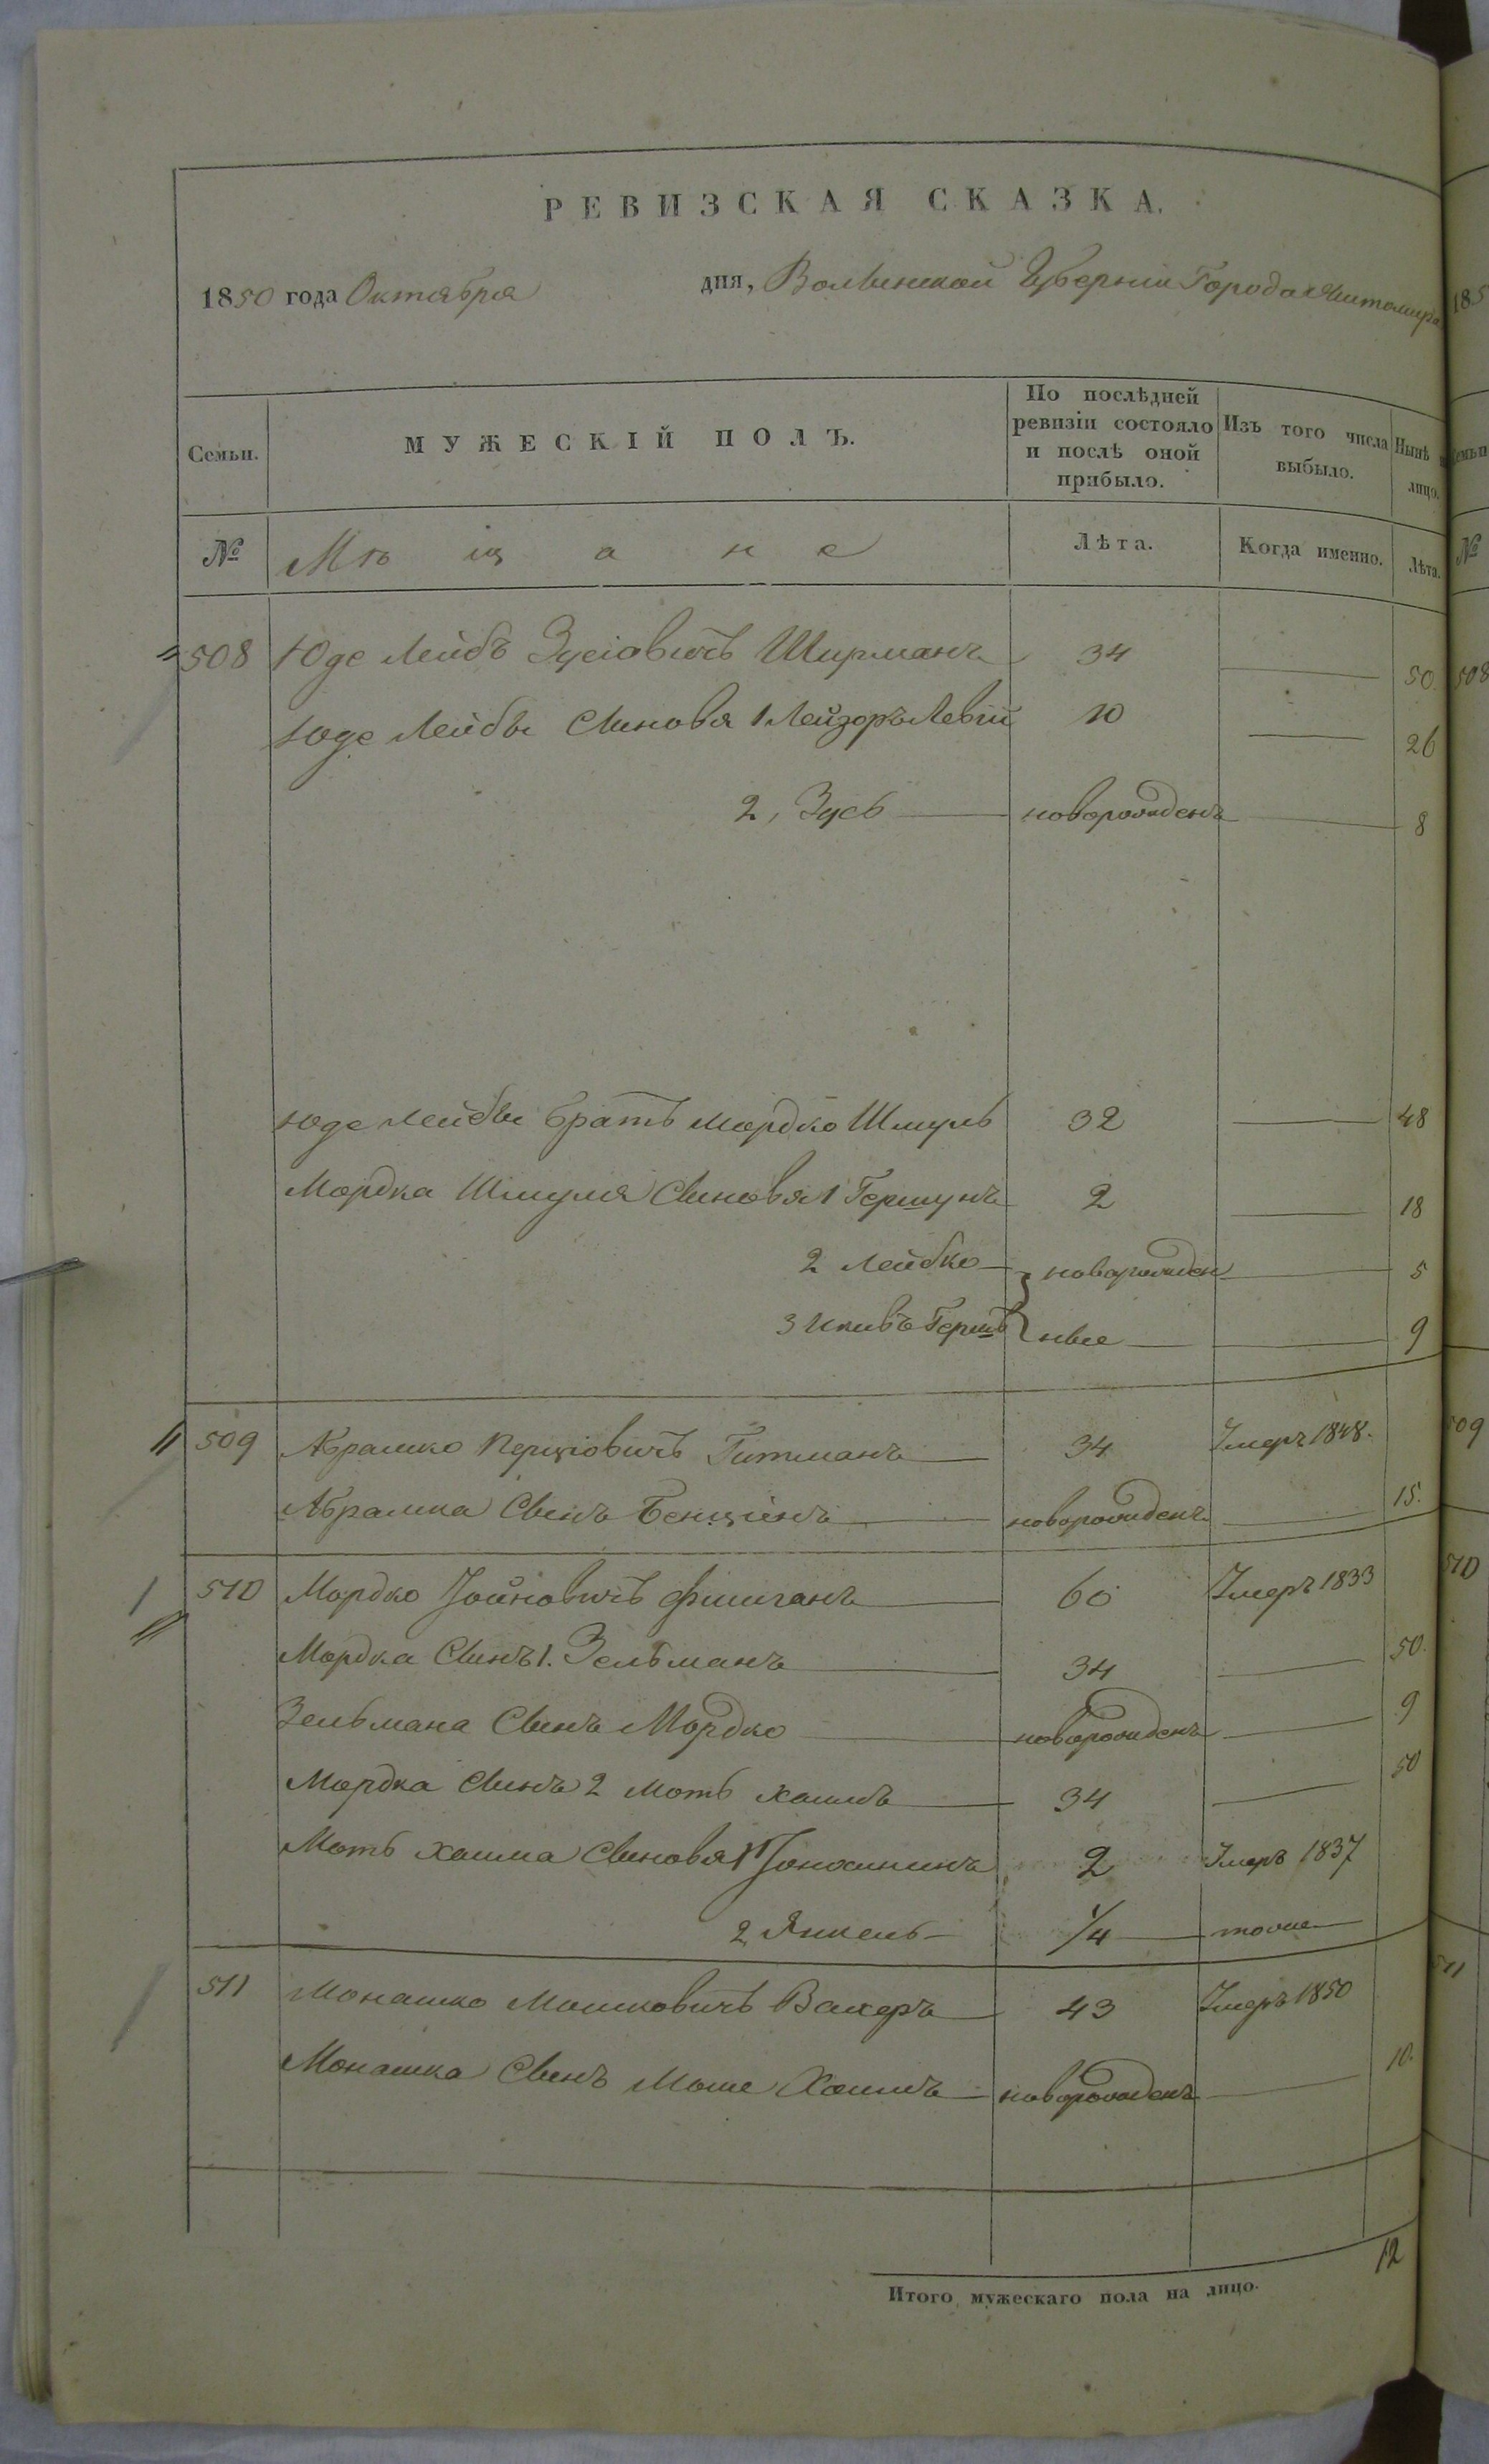 РЕВИЗСКАЯ СКАЗКА.
1850 года Октября дня, Волынской Губерніи Города Житомира
Семьи. МУЖЕСКІЙ ПОЛЪ. По послѣдней ревизіи состояло и послѣ оной прибыло. Изъ того числа выбыло. Нынѣ лицо.
№ Мѣщане Лѣта. Когда именно. Лѣта.
508 Юде Лейбъ Зусіовичъ Ширманъ 34 50.
Юде Лейбы Сыновья 1 Лейзоръ Левій 10 26
2, Зусь новорожденъ 8
Юде Лейбы братъ Мордко Шмуль 32 48
Мордка Шмуля Сыновья 1 Гершунъ 2 18
2 Лейбко новорожден 5
3 Икивъ Гершъ ные 9
509 Абрамко Перціовичъ Гитманъ 34 Умеръ 1848.
Абрамка Сынъ Бенціонъ новорожденъ 15.
510 Мордко Іойновичъ Фишганъ 60 Умеръ 1833
Мордка Сынъ 1. Зельманъ 34 50.
Зельмана Сынъ Мордко новорожденъ 9
Мордка Сынъ 2 Моть Хаимъ 34 50
Моть Хаима Сыновья 1 2 Умеръ 1837
2 Янкель 1/4 тоже
511 Монашко Мошковичъ Вакеръ 43 Умеръ 1850
Монашка Сынъ Моше Хаимъ новорожденъ 10.
12
Итого мужескаго пола на лицо.